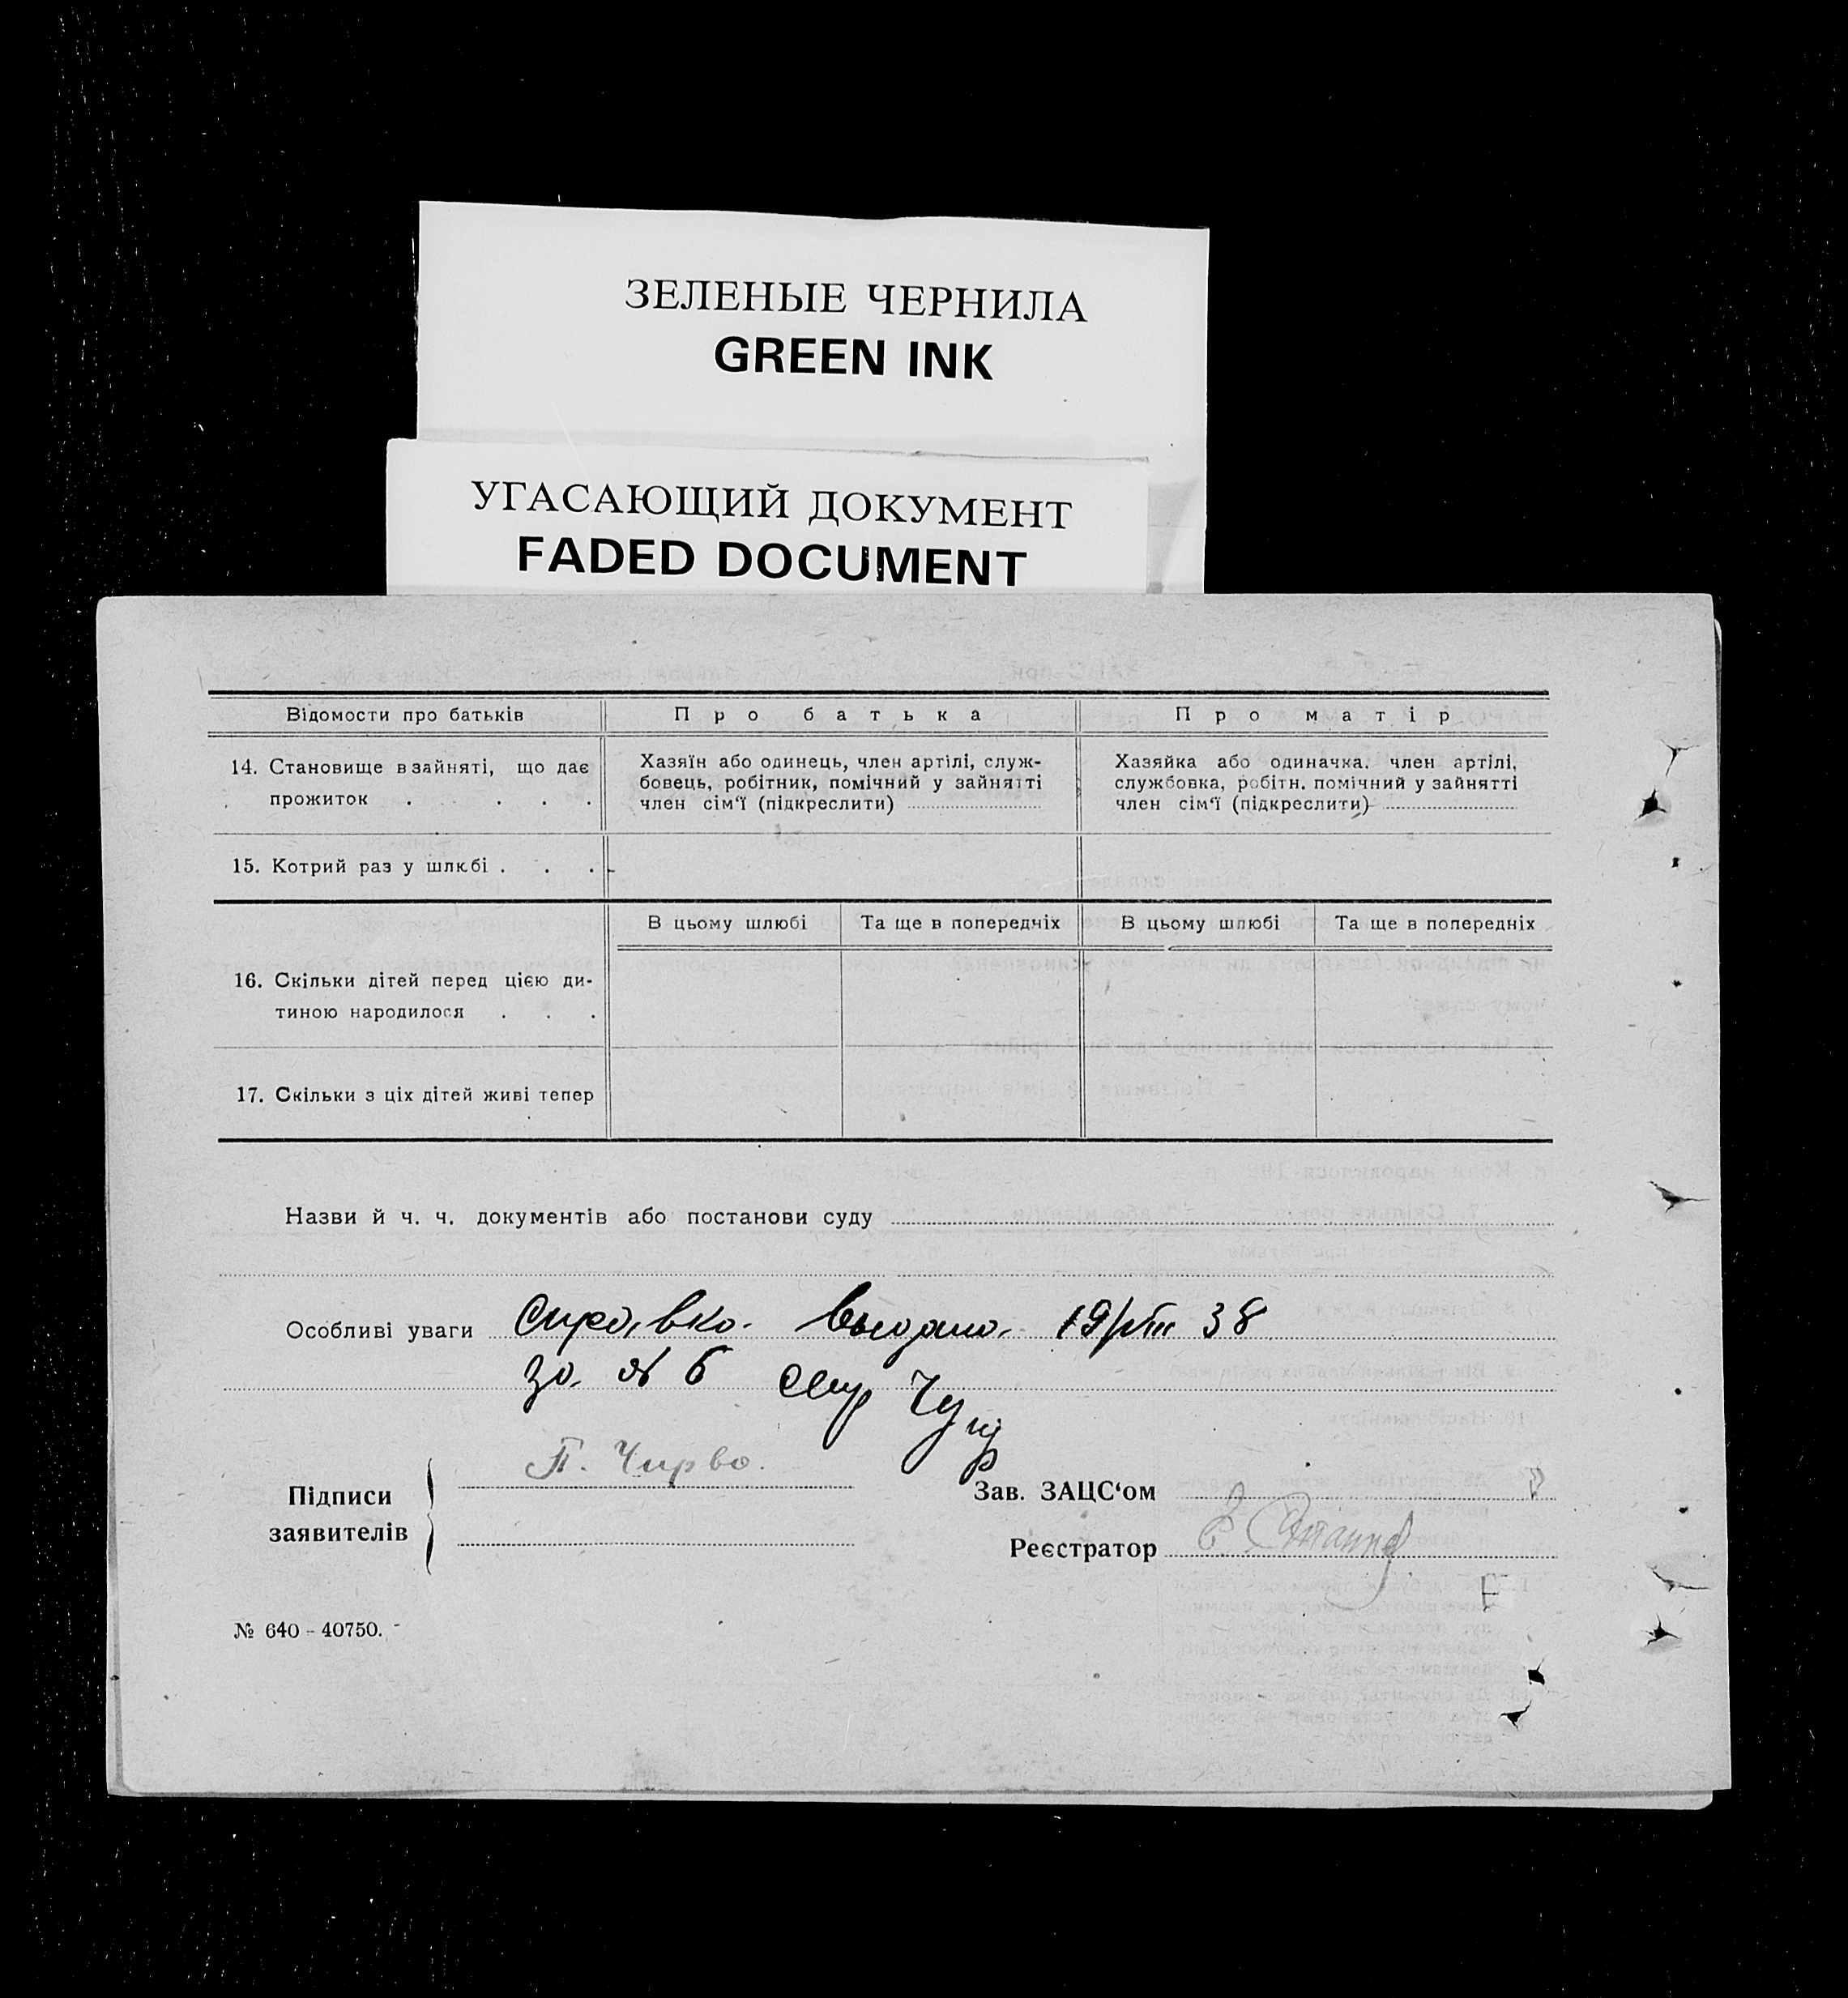 ЗЕЛЕНЫЕ ЧЕРНИЛА
GREEN INK
УГАСАЮЩИЙ ДОКУМЕНТ
FADED DOCUMENT
Відомости про батьків
Про батька
Про матір
14. Становище в зайняті, що дає
прожиток . . . .
Хазяїн або одинець, член артілі, служ-
бовець, робітник, помічний у зайнятті
член сім'ї (підкреслити)
Хазяйка або одиначка, член артілі,
службовка, робітн. помічний у зайнятті
член сім'ї (підкреслити)
15. Котрий раз у шлюбі . . .
В цьому шлюбі
Та ще в попередніх
В цьому шлюбі
Та ще в попередніх
16. Скільки дітей перед цією ди-
тиною народилося . . .
17. Скільки з ціх дітей живі тепер
Назви й ч. ч. документів або постанови суду
Особливі уваги Справка выдана 19/VIII 38
за № 6
П. Чирва.
Підписи
заявителів
Зав. ЗАЦС'ом
Реєстратор
№ 640 – 40750.